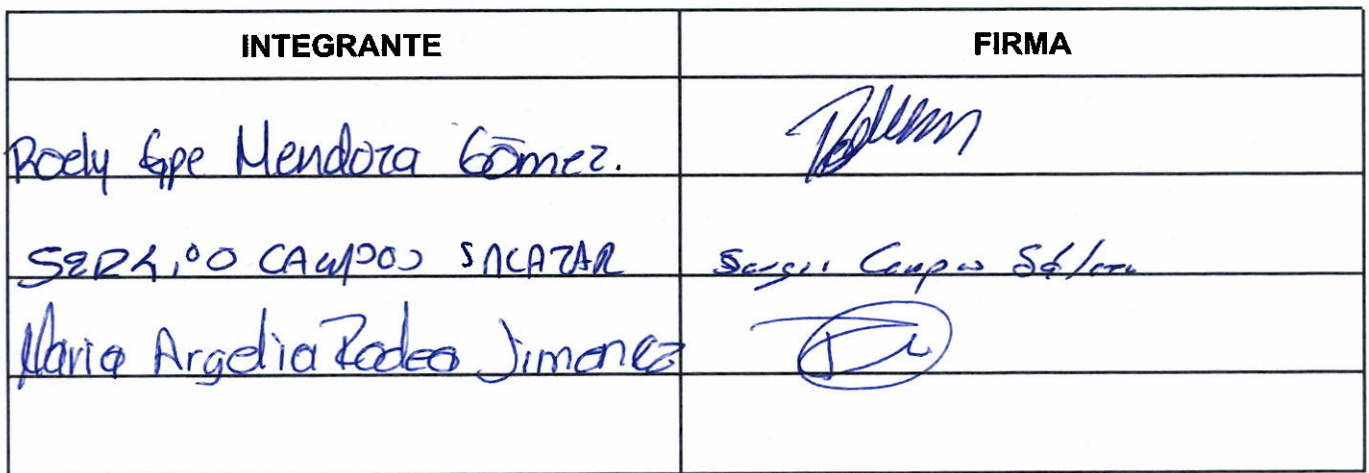 INTEGRANTE FIRMA
Roely Gpe Mendoza Gómez.
SERGIO CAMPOS SALAZAR Sergio Campos
Maria Argelia Rodea Jimenez